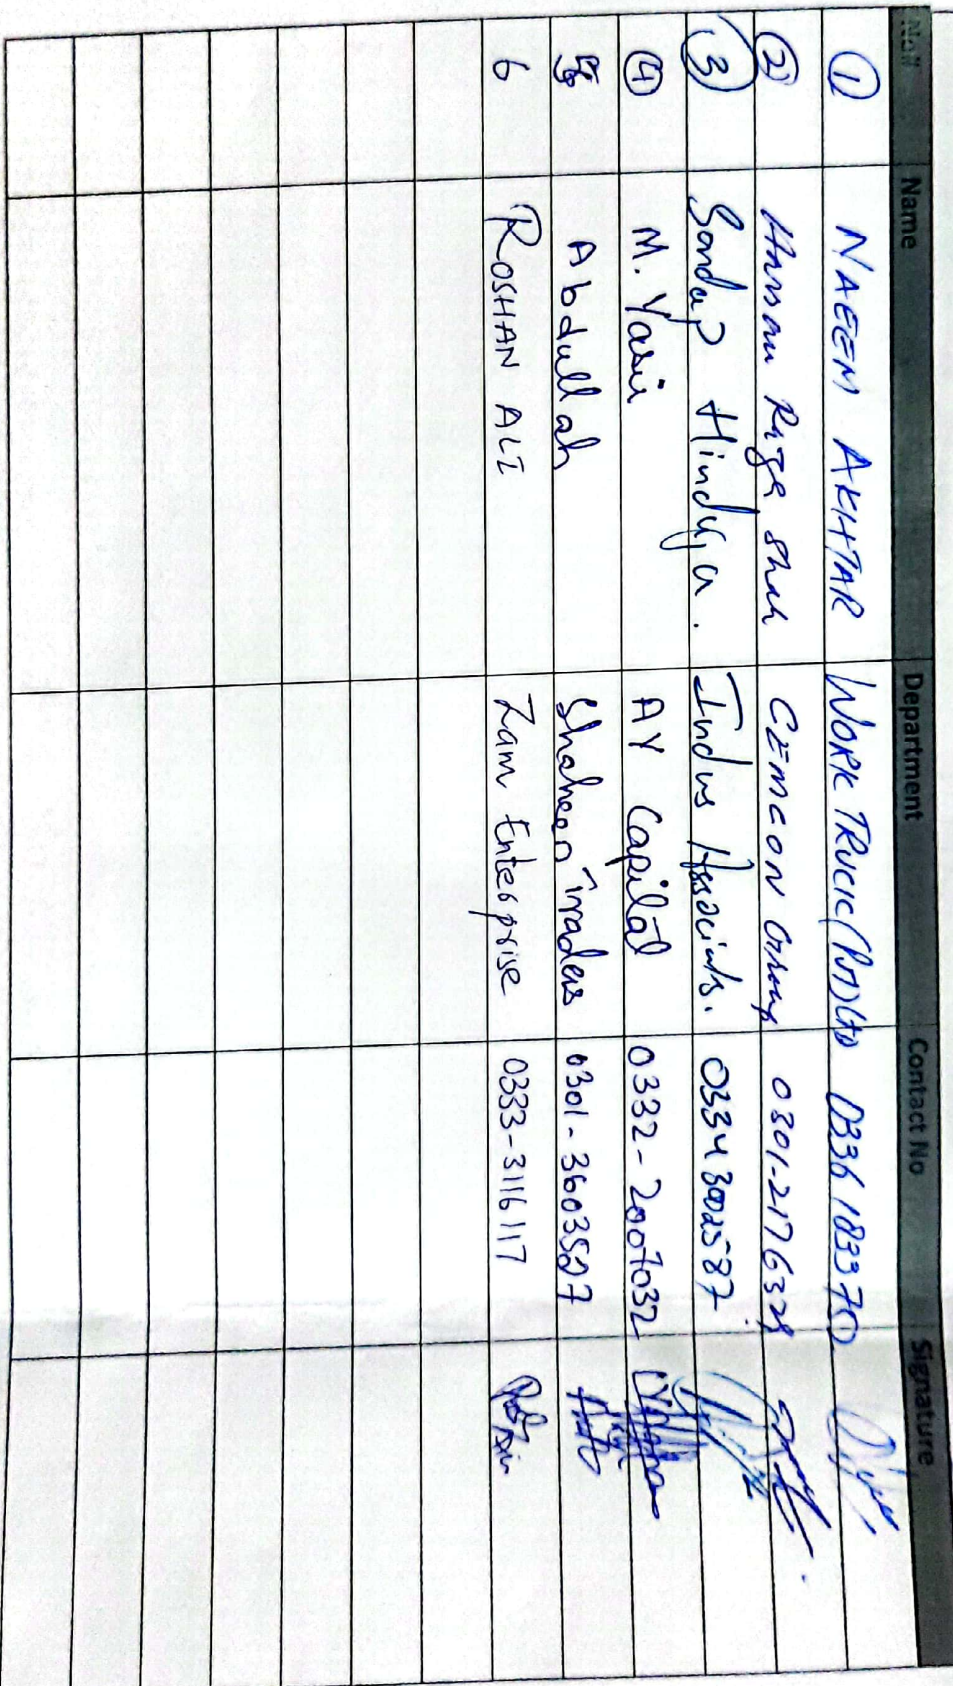 No# Name Department Contact No Signature
1 NAEEM AKHTAR WORK TRUCK (Pvt) Ltd 0336 1833750
2 Hassan Raza Shah CEMCON Group 0301-2176328
3 Sandap Hinduja. Indus Associats. 0334 3002587
4 M. Yasir AY Capital 0332-2007032
5 Abdullah Shaheen Traders 0301-3603507
6 ROSHAN ALI Zam Enterprise 0333-3116117